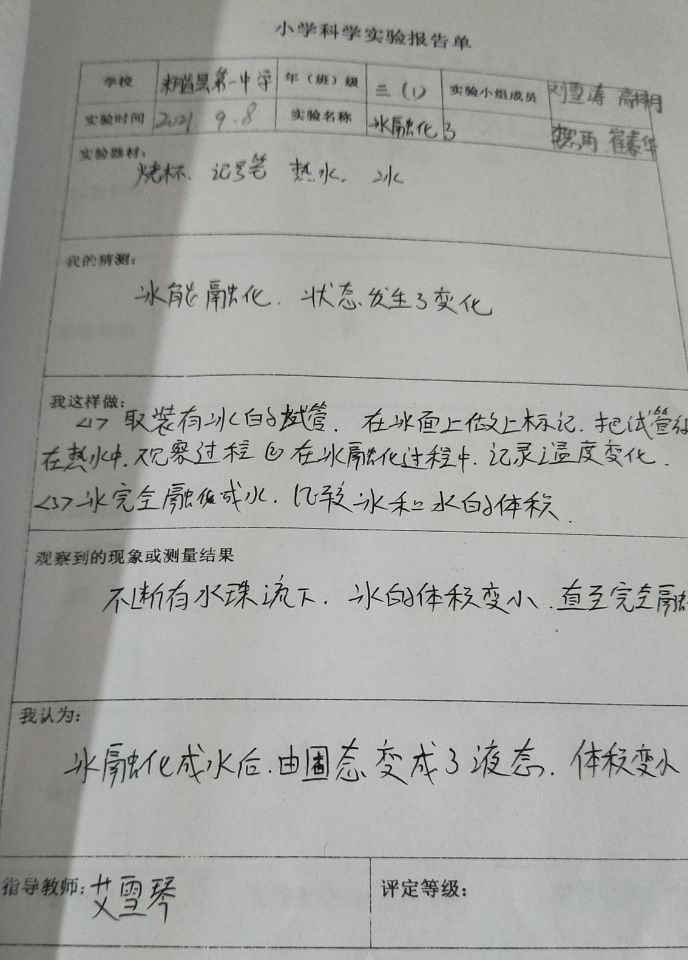 小学科学实验报告单
学校 米脂县第一中学 年(班)级 三(1) 实验小组成员 刘雪涛
实验时间 2021 9.8 实验名称 冰融化了 崔春华
实验器材:
烧杯、记号笔 热水、冰
我的猜测:
冰能融化.状态发生了变化
我这样做:
<1>取装有冰的试管.在冰面上做上标记.把试管
在热水中.观察过程②在冰融化过程中.记录温度变化.
<3>冰完全融化成水.比较冰和水的体积.
观察到的现象或测量结果
不断有水珠流下.冰的体积变小.直至完全融
我认为:
冰融化成水后.由固态变成了液态.体积变小
指导教师:艾雪琴 评定等级: